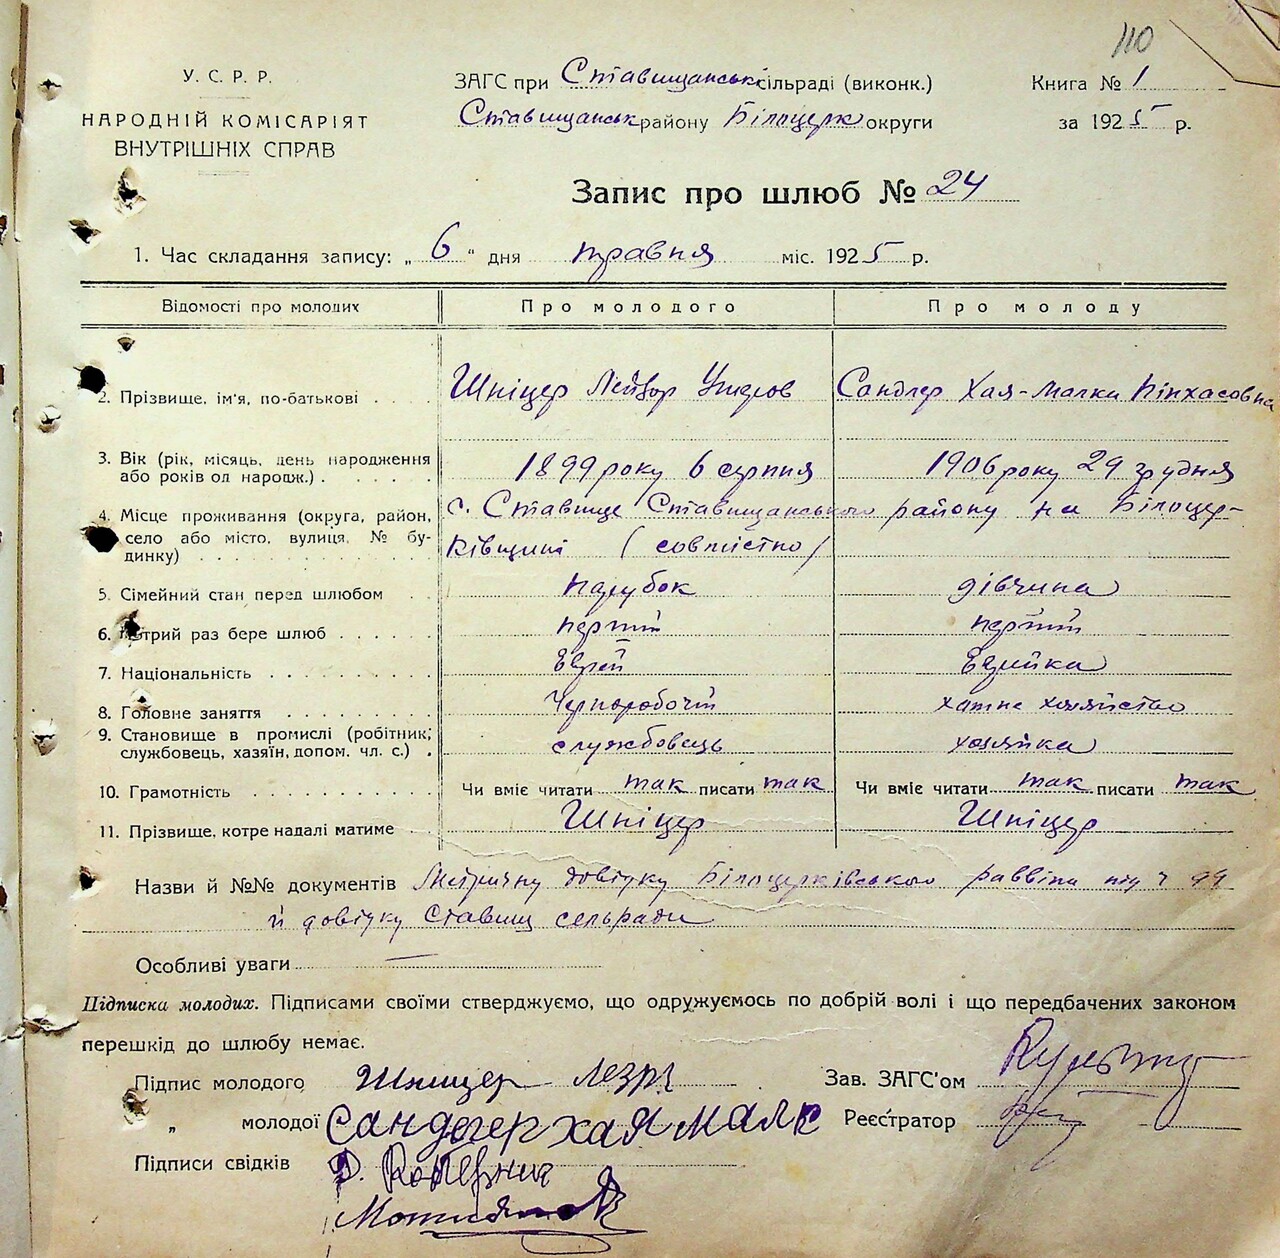 110
У. С. Р. Р.
НАРОДНІЙ КОМІСАРІЯТ
ВНУТРІШНІХ СПРАВ
ЗАГС при Ставищанські сільраді (виконк.)
Ставищанськ району Білоцерк округи
Книга № 1
за 1925 р.
Запис про шлюб № 24
1. Час складання запису: „ 6 “ дня травня міс. 1925 р.
Відомості про молодих Про молодого Про молоду
2. Прізвище, ім'я, по-батькові . . . . Шпіцер Лейзор Умеров Сандлер Хая-Малка Пінхасовна
3. Вік (рік, місяць, день народження або років од народж.) . . . . . 1899 року 6 серпня 1906 року 29 грудня
4. Місце проживання (округа, район, село або місто, вулиця, № будинку) . . . . . с. Ставище Ставищанського району на Білоцер-
ківщині (совмістно)
5. Сімейний стан перед шлюбом . . парубок дівчина
6. Котрий раз бере шлюб . . . . . перший перший
7. Національність . . . . . Еврей Еврейка
8. Головне заняття . . . . . Чорноробочій хатне хозяйство
9. Становище в промислі (робітник, службовець, хазяїн, допом. чл. с.) . службовець хозяйка
10. Грамотність . . . . . Чи вміє читати так писати так Чи вміє читати так писати так
11. Прізвище, котре надалі матиме Шпіцер Шпіцер
Назви й №№ документів Метричну довідку Білоцерківського раввіна під ч 99
й довідку Ставищ сельради
Особливі уваги —
Підписка молодих. Підписами своїми стверджуємо, що одружуємось по добрій волі і що передбачених законом
перешкід до шлюбу немає.
Підпис молодого Шпицер Лезр
Зав. ЗАГС'ом
„ молодої Сандлер Хая Малк
Реєстратор
Підписи свідків